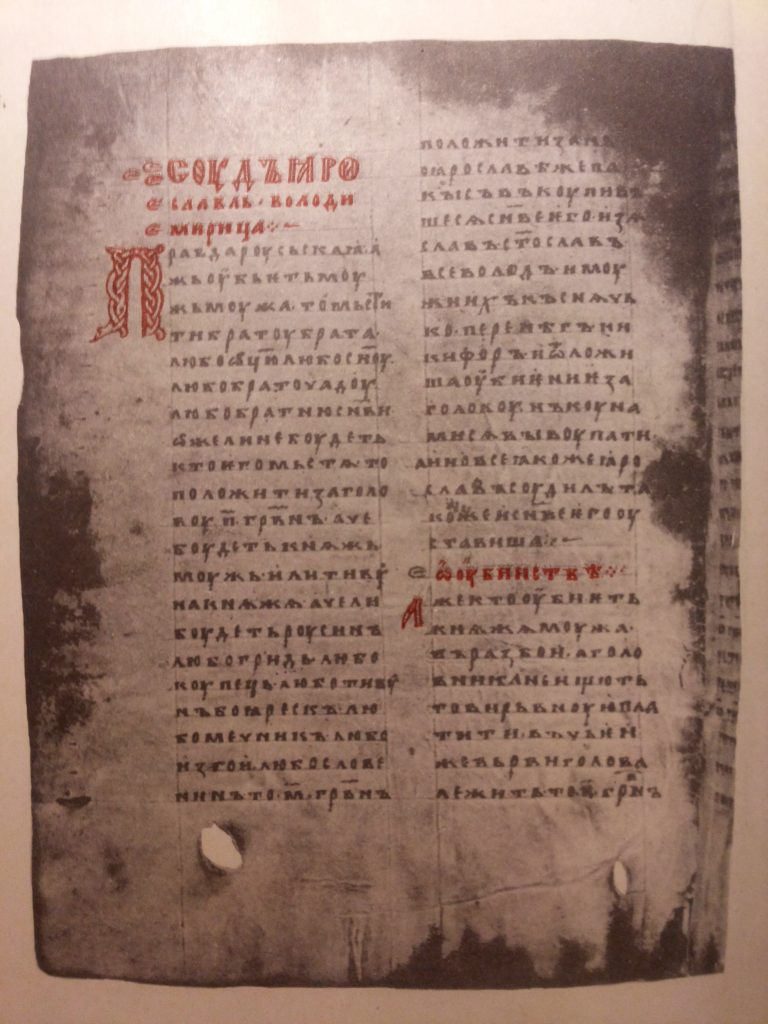 СОУДЪ ꙖРО
СЛАВЛЬ · ВОЛОДИ
МИРИЦА
Правда роусьскаꙗ · а
жь оубьѥть моу
жь моужа · то мьстит
ти братоу брата
любо ѿцю любо сн҃оу
любо браточадоу
любо братню сн҃ви
ѡже ли не боудеть
кто ѥго мьстѧ то
положити за голо
воу п҃ · грв҃нъ · аче
боудеть кнѧжь
моужь или тивоу
на кнѧжѧ · аче ли
боудеть роусинъ
любо гридь · любо
коупець · любо тивоу
нъ боꙗрескъ · лю
бо мечникъ · любо
изгои · любо слове
нинъ то · м҃ · грв҃нъ
положити за нь
о ꙗрославѣ же
съвъкоупивъ
шесѧ сн҃ве ѥго · изѧ
славъ ст҃ославъ
всеволодъ · и моу
жи ихъ къснѧчь
ко · перенѣгъ ни
кифоръ · и ѿложи
ша оубиѥниѥ за
головоу · нъ коуна
ми сѧ выкоупати ·
а ино все ꙗкоже ꙗро
славъ соудилъ · та
коже и сн҃ве ѥго оу
ставиша
Ѡ ОУБИИСТВѢ
Аже кто оубиѥть
кнѧжѧ моужа ·
въ разбои · а голо
вника не ищють
то вирьвноую пла
тити · въ чьѥи
же вьрви голова
лежить то п҃ · грв҃нъ